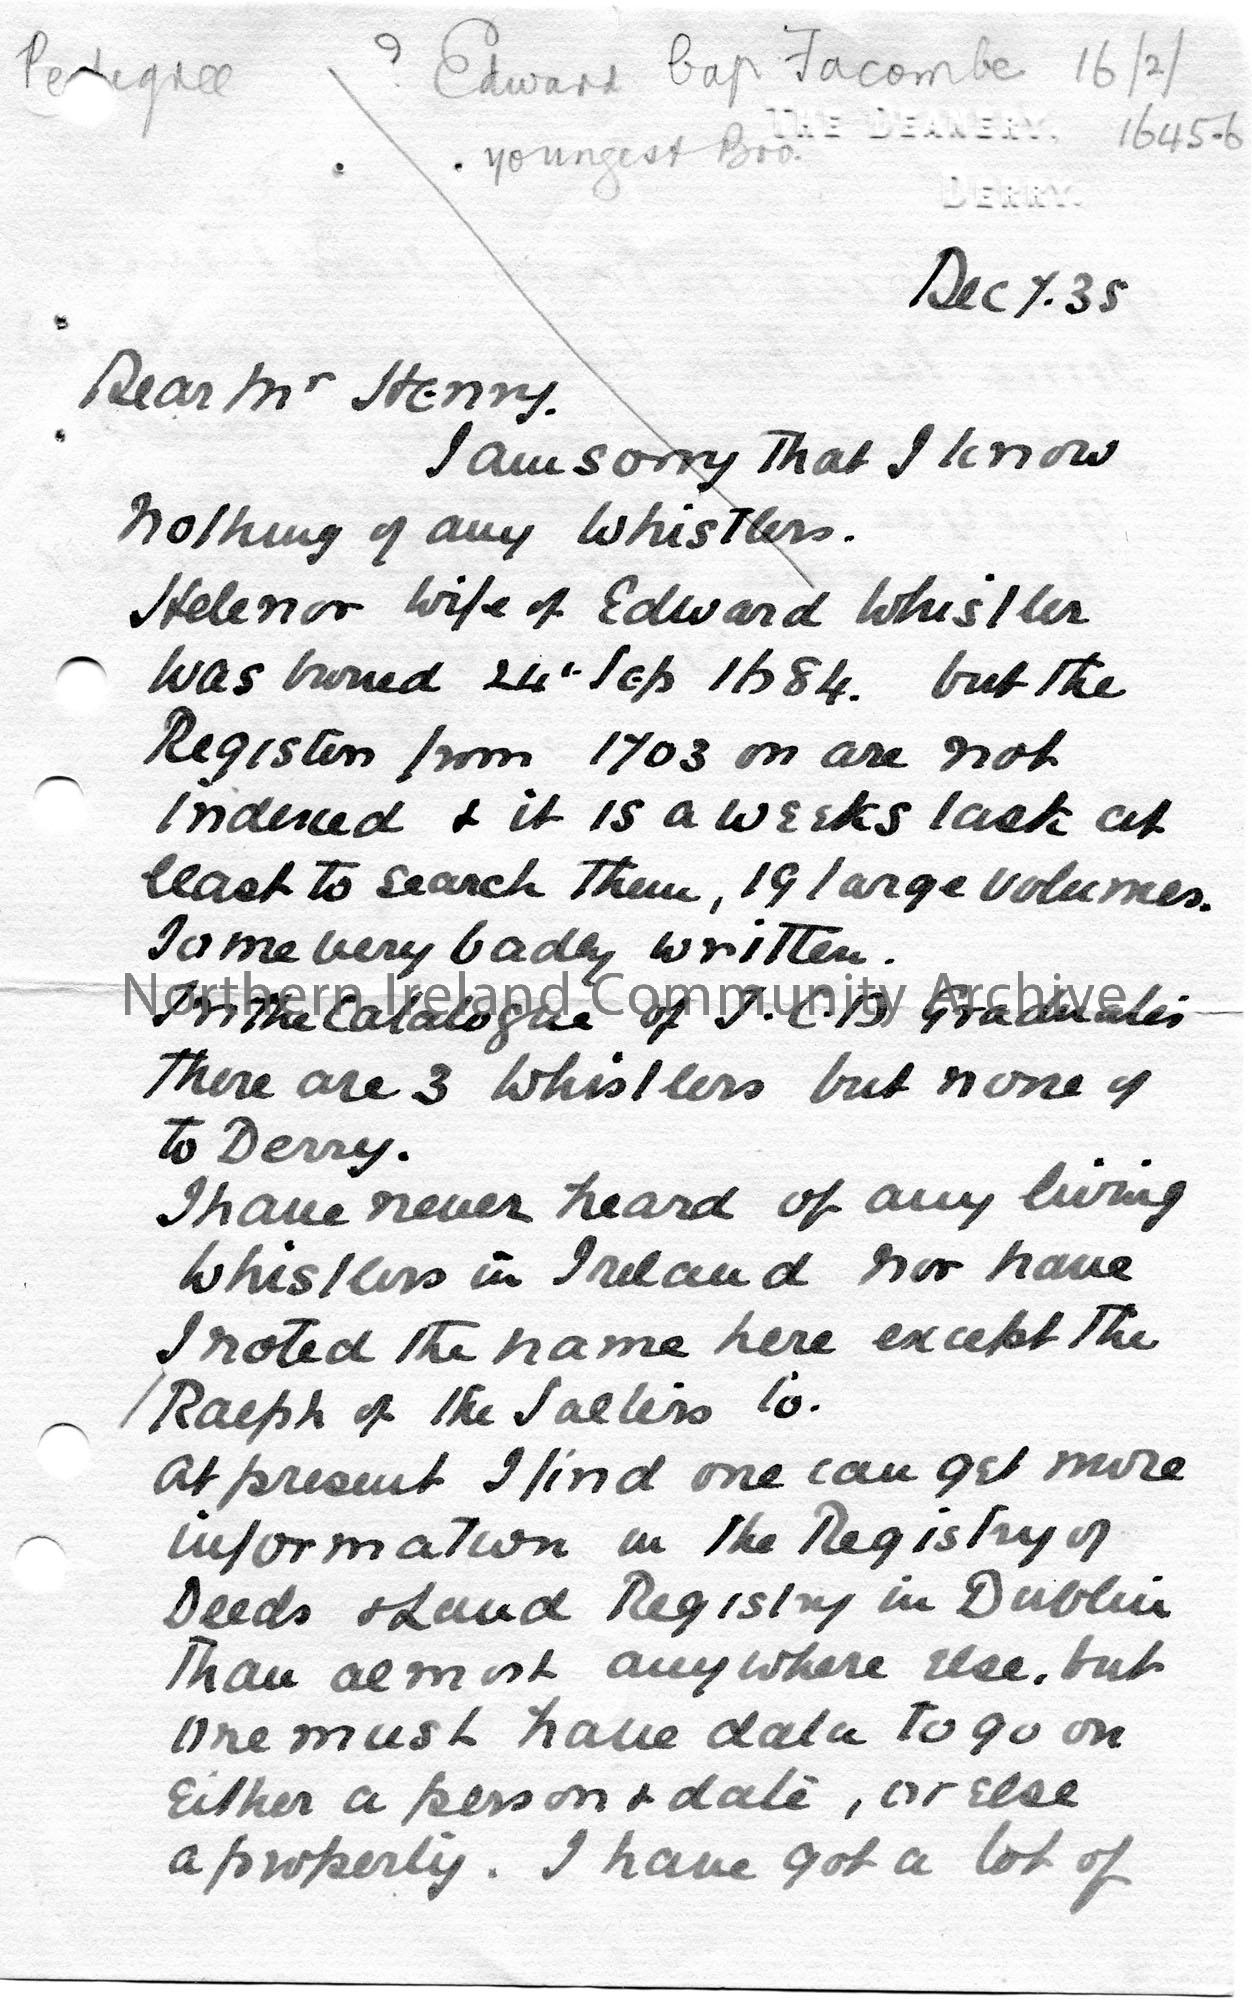 Pedigree ? Edward bap Facombe 16/2/
1645-6
youngest Bro.
THE DEANERY.
DERRY.
Dec 7. 35
Dear Mr Henry.
I am sorry that I know
nothing of any Whistlers.
Helenor wife of Edward Whistler
was buried 24th Sep 1684. but the
Registers from 1703 on are not
indexed & it is a weeks task at
least to search them, 19 large volumes.
Some very badly written.
Northern Ireland Community Archive
In the Catalogue of T.C.D. Graduates
there are 3 Whistlers but none of
to Derry.
I have never heard of any living
Whistlers in Ireland nor have
I noted the name here except the
Ralph of the Salters Co.
At present I find one can get more
information in the Registry of
Deeds & Land Registry in Dublin
than almost anywhere else. but
one must have data to go on
Either a person & date, or else
a property. I have got a lot of